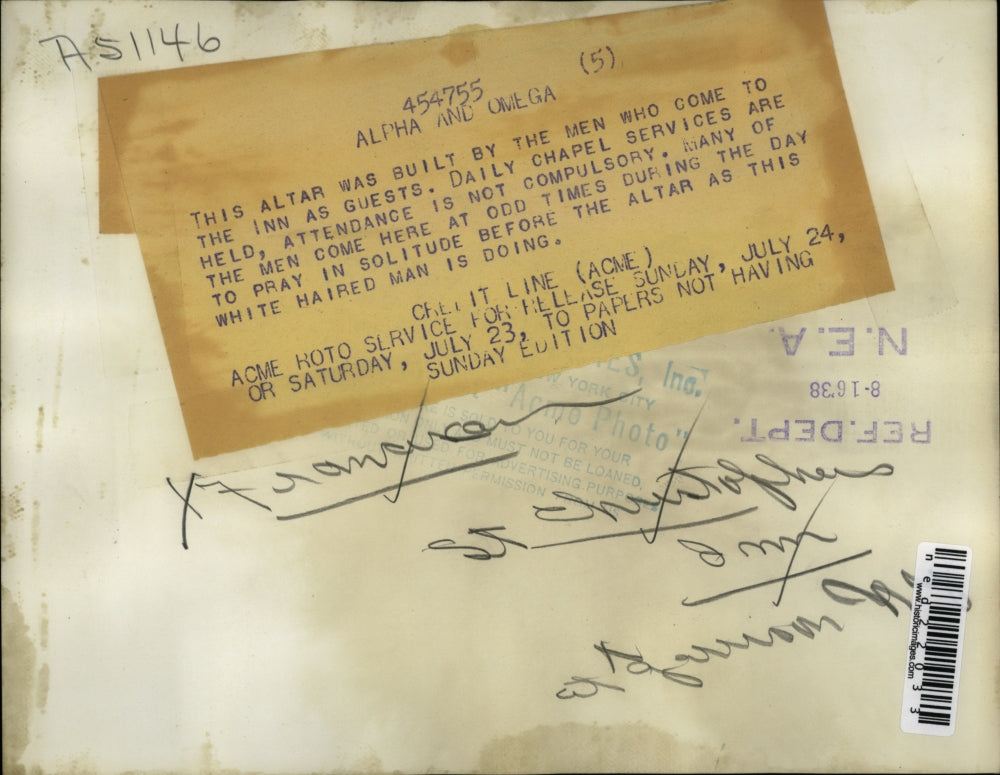 A51146
454755 (5)
ALPHA AND OMEGA
THIS ALTAR WAS BUILT BY THE MEN WHO COME TO
THE INN AS GUESTS. DAILY CHAPEL SERVICES ARE
HELD, ATTENDANCE IS NOT COMPULSORY. MANY OF
THE MEN COME HERE AT ODD TIMES DURING THE DAY
TO PRAY IN SOLITUDE BEFORE THE ALTAR AS THIS
WHITE HAIRED MAN IS DOING.
CREDIT LINE (ACME)
ACME ROTO SERVICE FOR RELEASE SUNDAY, JULY 24,
OR SATURDAY, JULY 23, TO PAPERS NOT HAVING
SUNDAY EDITION
Inc.
YORK CITY
Acme Photo"
IS SOLD TO YOU FOR YOUR
MUST NOT BE LOANED,
FOR ADVERTISING PURPOSES
PERMISSION
N.E.A.
8-16'38
REF. DEPT.
Franciscan
St Christopher's
Inn
St
ned22033
www.historicimages.com